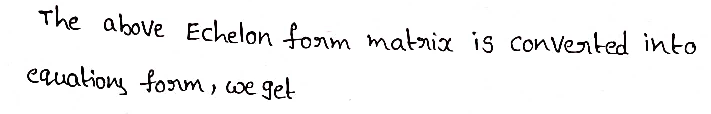 The above Echelon form matrix is converted into
equations form, we get